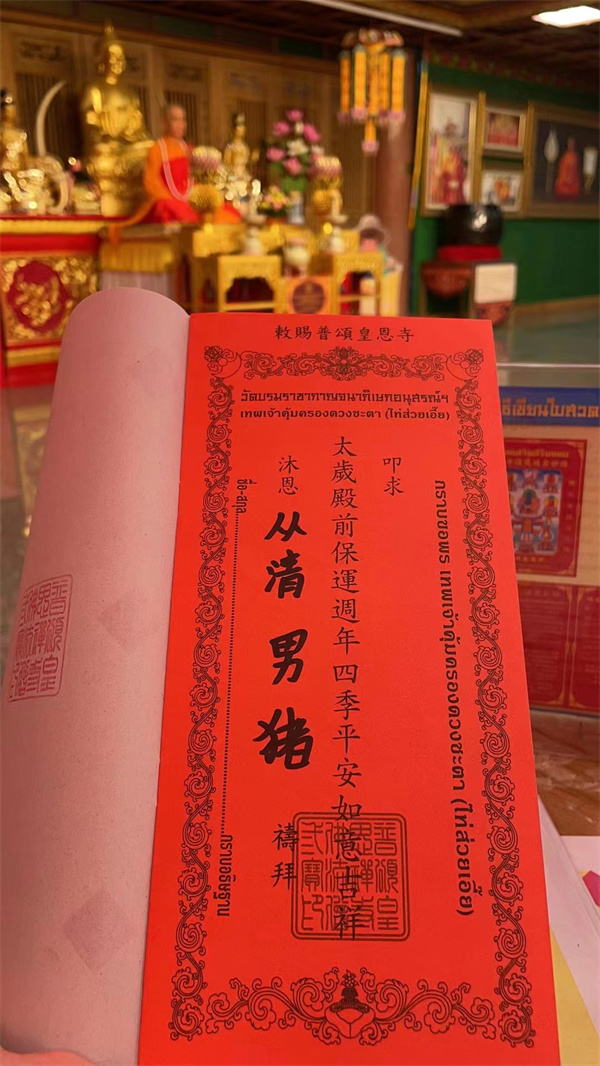 敕賜普頌皇恩寺
วัดบรมราชากาญจนาภิเษกอนุสรณ์ฯ
เทพเจ้าคุ้มครองดวงชะตา (ไท่ส่วยเอี้ย)
กราบขอพร เทพเจ้าคุ้มครองดวงชะตา (ไท่ส่วยเอี้ย)
叩求
太歲殿前保運週年四季平安如意吉祥
沐恩
从清男猪
禱拜
ชื่อ-สกุล
กราบอธิษฐาน
ธีเขียนใบสวด